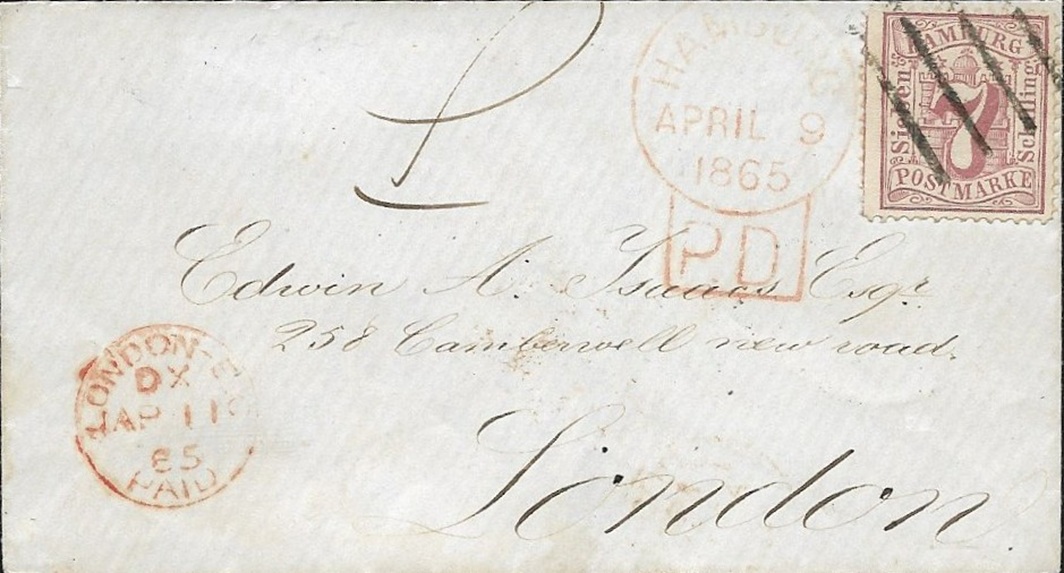 HAMBURG
APRIL 9
1865
P.D
HAMBURG
Sieben
7
Schilling
POSTMARKE
Edwin A. Isaacs Esqr
258 Camberwell new road.
London
LONDON-E.C
DX
AP 11
65
PAID